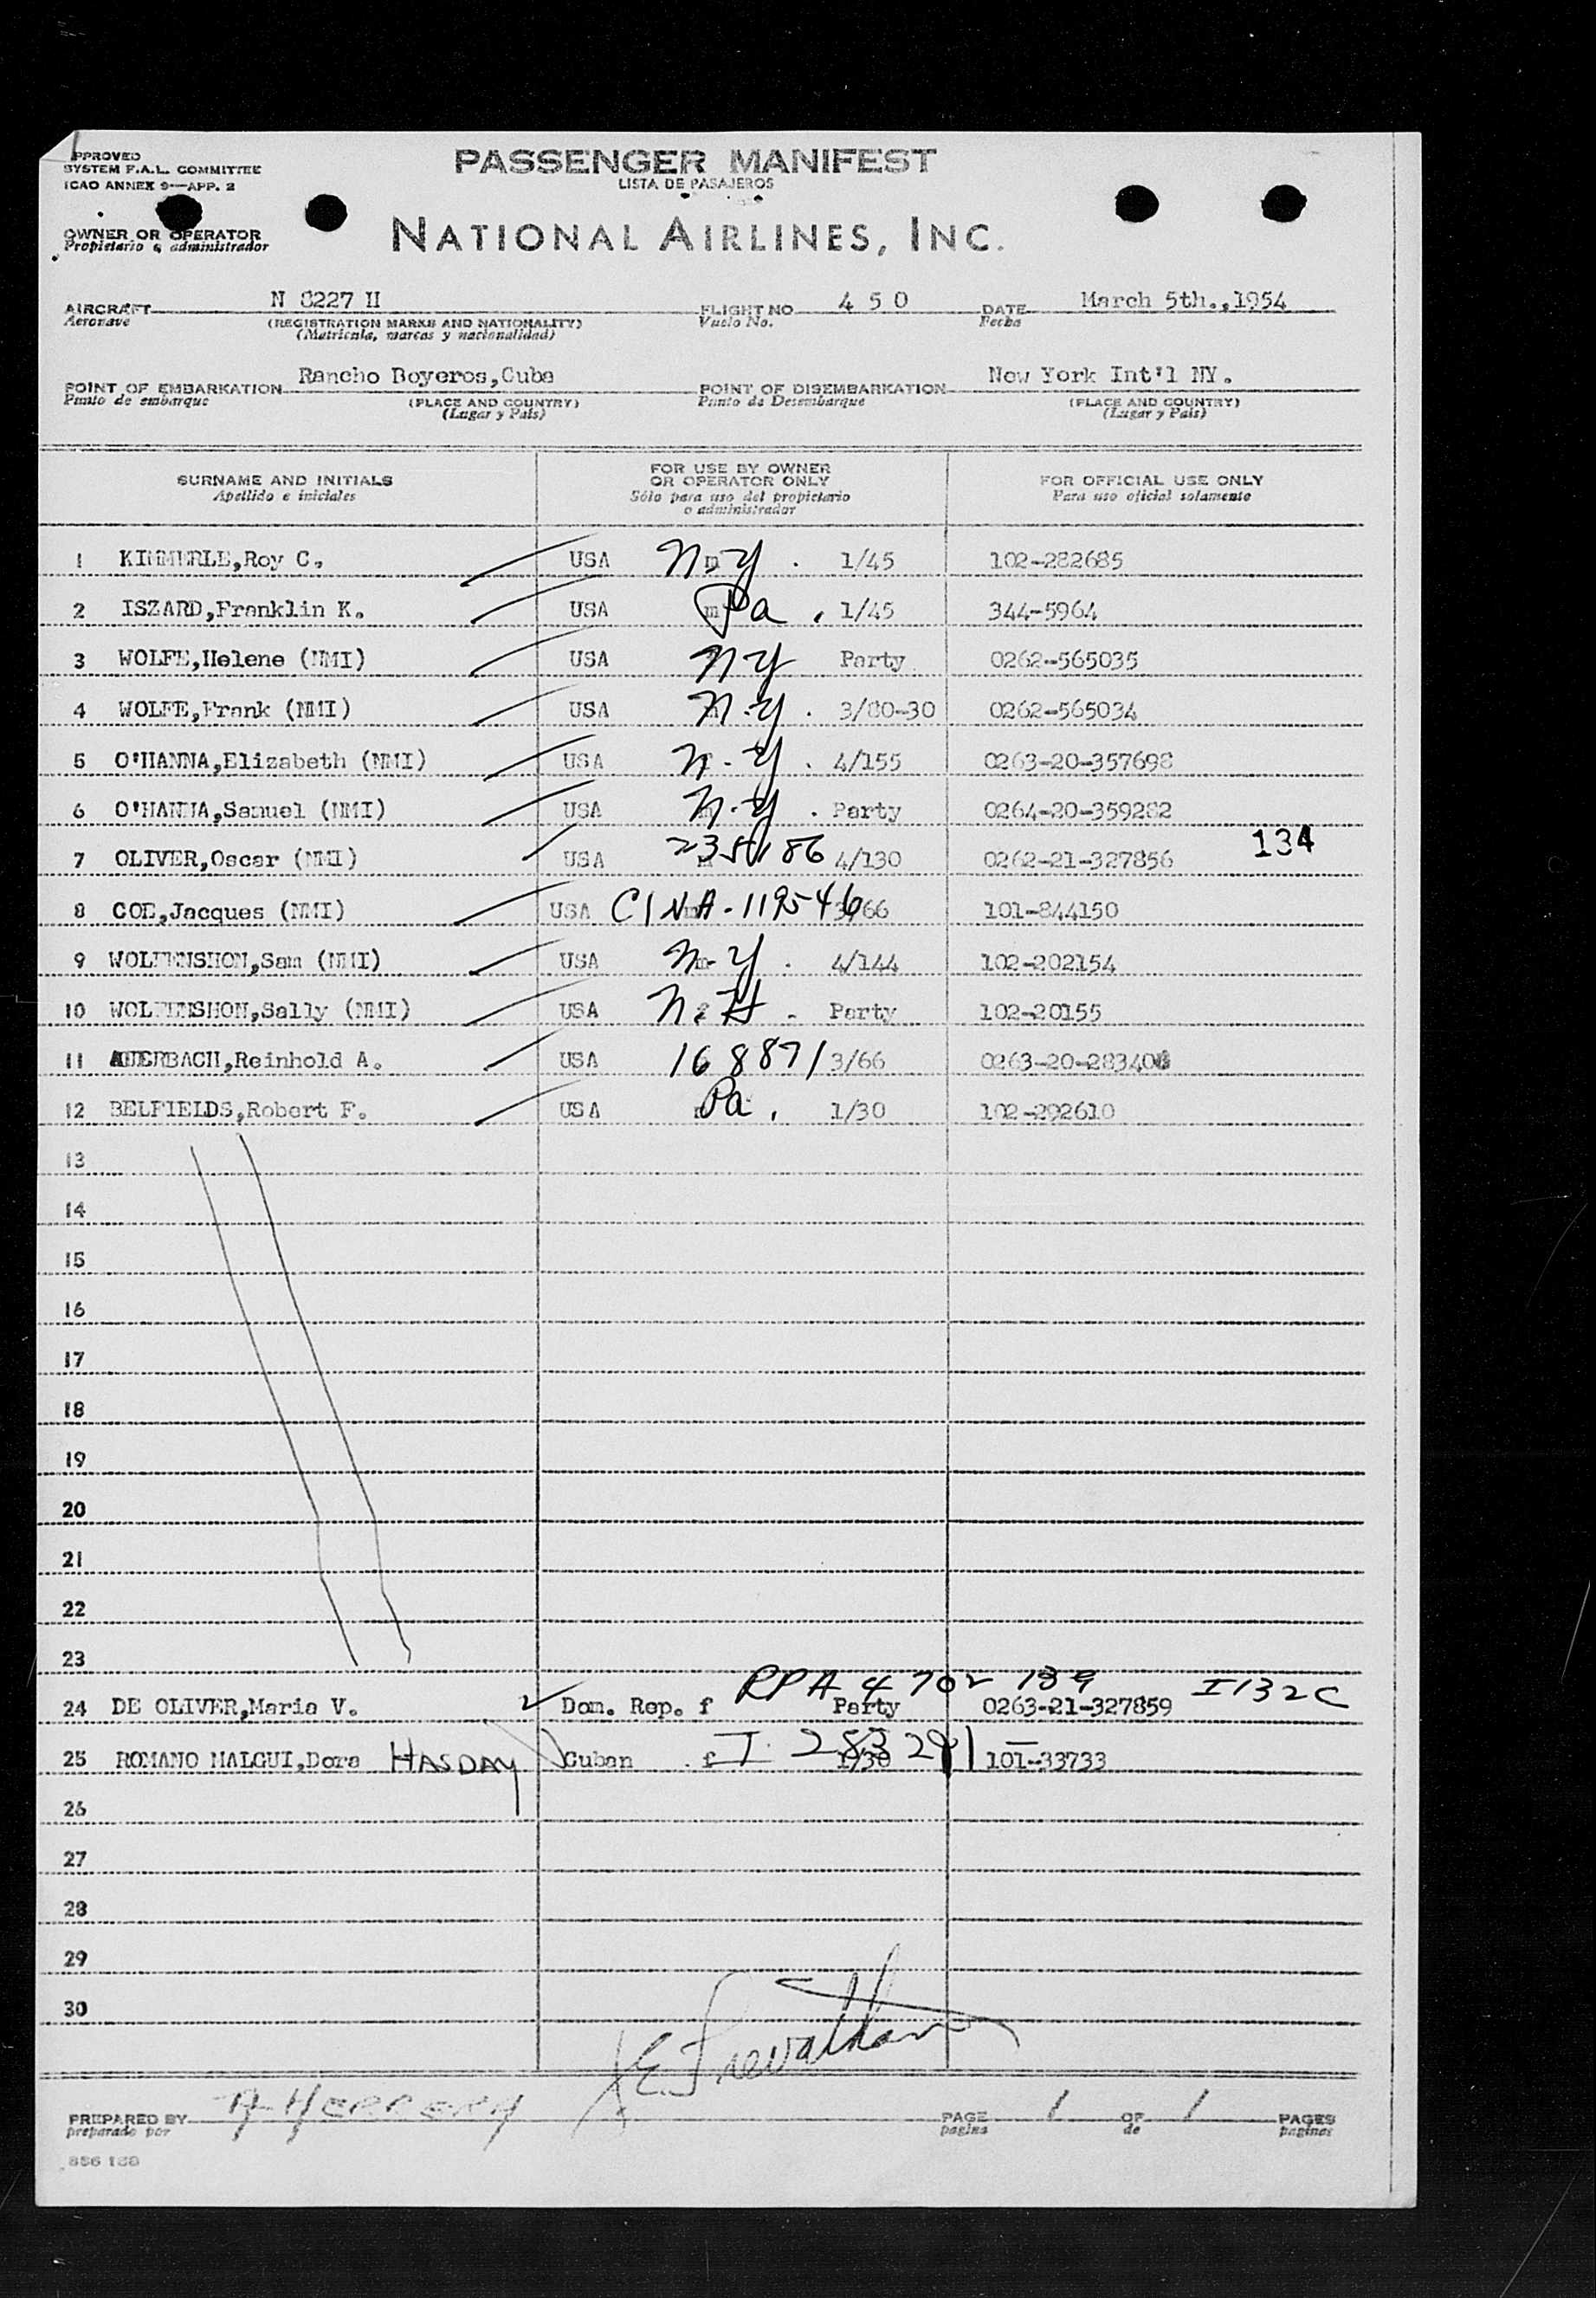 APPROVED
SYSTEM F.A.L. COMMITTEE
ICAO ANNEX 9—APP. 2
PASSENGER MANIFEST
LISTA DE PASAJEROS
OWNER OR OPERATOR
Propietario o administrador
NATIONAL AIRLINES, INC.
AIRCRAFT N 8227 H FLIGHT NO 4 5 0 DATE March 5th.,1954
Aeronave (REGISTRATION MARKS AND NATIONALITY) Vuelo No. Fecha
(Matricula, marcas y nacionalidad)
POINT OF EMBARKATION Rancho Boyeros,Cuba POINT OF DISEMBARKATION New York Int'l NY.
Punto de embarque (PLACE AND COUNTRY) Punto de Desembarque (PLACE AND COUNTRY)
(Lugar y País) (Lugar y País)
SURNAME AND INITIALS FOR USE BY OWNER OR OPERATOR ONLY FOR OFFICIAL USE ONLY
Apellido e iniciales Sólo para uso del propietario o administrador Para uso oficial solamente
1 KIMMERLE,Roy C. USA m N.Y. 1/45 102-282685
2 ISZARD,Franklin K. USA m Pa. 1/45 344-5964
3 WOLFE,Helene (NMI) USA NY Party 0262-565035
4 WOLFE,Frank (NMI) USA N.Y. 3/80-30 0262-565034
5 O'HANNA,Elizabeth (NMI) USA N.Y. 4/155 0263-20-357698
6 O'HANNA,Samuel (NMI) USA N.Y. Party 0264-20-359282
7 OLIVER,Oscar (NMI) USA 4/130 0262-21-327856 134
8 COE,Jacques (NMI) USA 3/66 101-844150
9 WOLFENSHON,Sam (NMI) USA m N.Y. 4/144 102-202154
10 WOLFENSHON,Sally (NMI) USA f N.H. Party 102-20155
11 AUERBACH,Reinhold A. USA 168871 3/66
12 BELFIELDS,Robert F. USA Pa. 1/30 102-292610
13
14
15
16
17
18
19
20
21
22
23
24 DE OLIVER,Maria V. Dom. Rep. f RPA Party 0263-21-327859 I132C
25 ROMANO MALGUI,Dora HASDAY Cuban f 1/30 101-33733
26
27
28
29
30
PREPARED BY PAGE 1 OF 1 PAGES
preparado por pagina de paginas